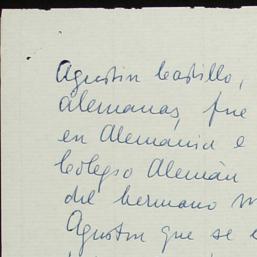 Agustin Castillo,
alemanas, fue
en Alemania e
Colegio Alemán
del hermano
Agustin que se